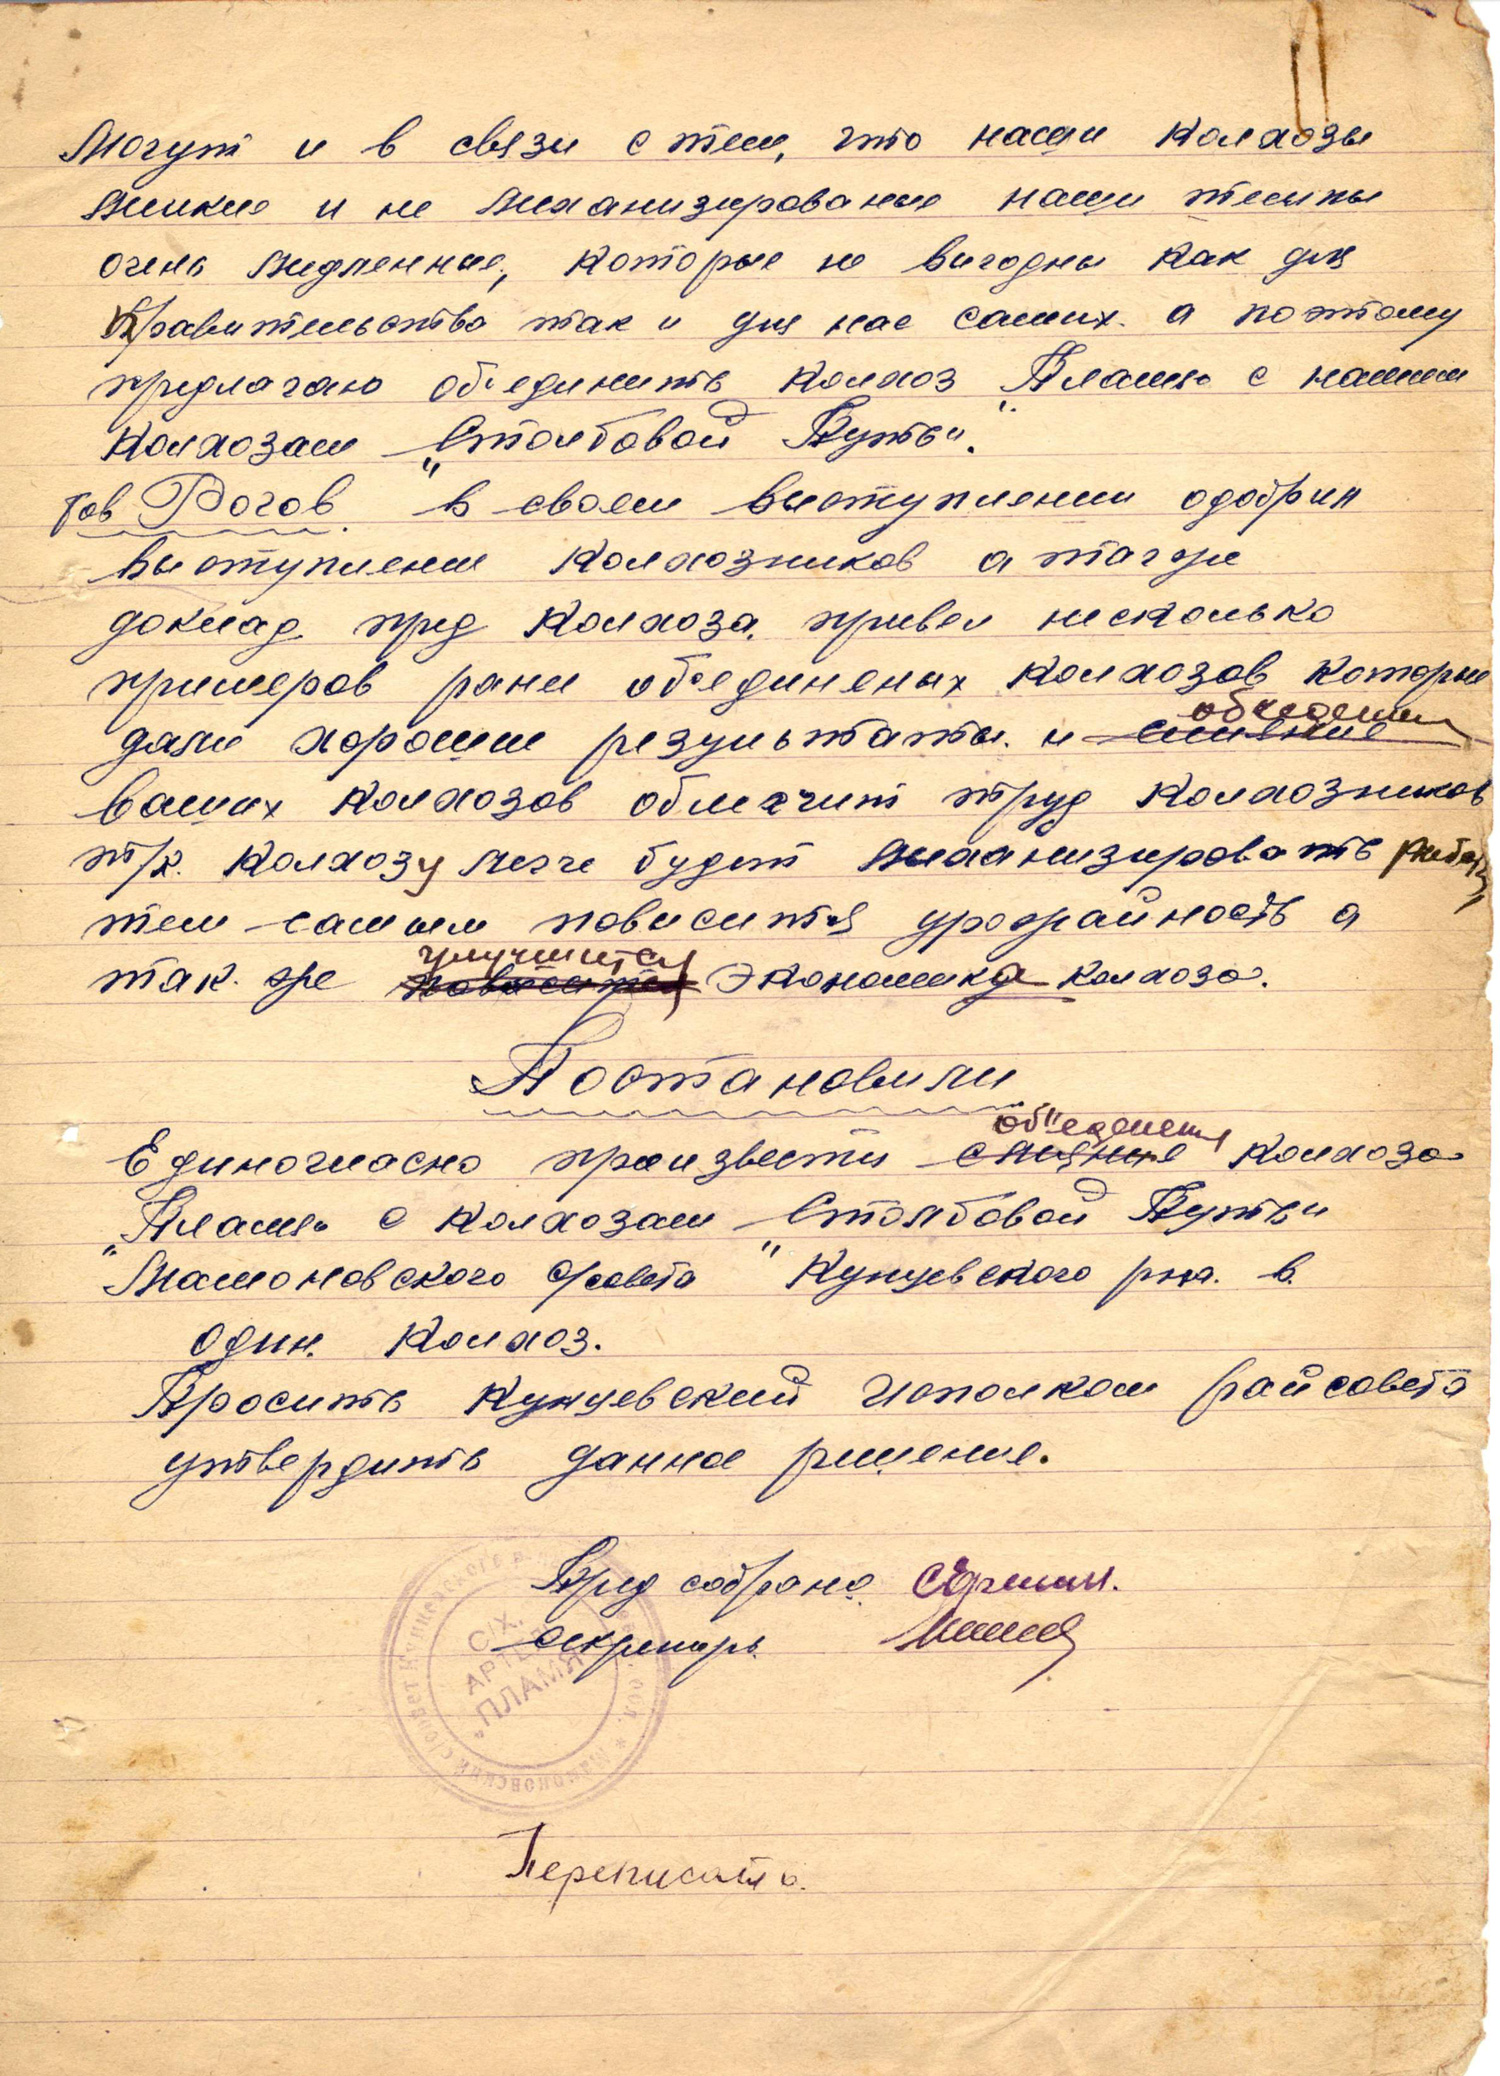 Могут и в связи с тем, что наши колхозы
мелкие и не механизированые наши темпы
очень медленные, которые не выгодны как для
правительства так и для нас самих. а поэтому
предлагаю объеденить колхоз „Пламя" с нашим
колхозам „Столбовой Путь".
тов Рогов. в своем выступлении одобрил
выступление колхозников а также
доклад пред колхоза, привел несколько
примеров ране объединеных колхозов которые
дали хорошие результаты. и слияние
ваших колхозов облегчит труд колхозников
т/к. колхозу легче будет механизировать
тем самым повысится урожайность а
так. же улучшится
повысится экономика колхоза.
Постановили
объеденение
Единогласно произвести слияние колхоза
„Пламя" с колхозам „Столбовой Путь"
Мамоновского с/совета Кунцевского р-на. в
один. колхоз.
Просить Кунцевский исполком райсовета
утвердить данное решение.
Пред собрания
Секретарь
С/Х.
АРТЕЛЬ
„ПЛАМЯ"
Переписать.